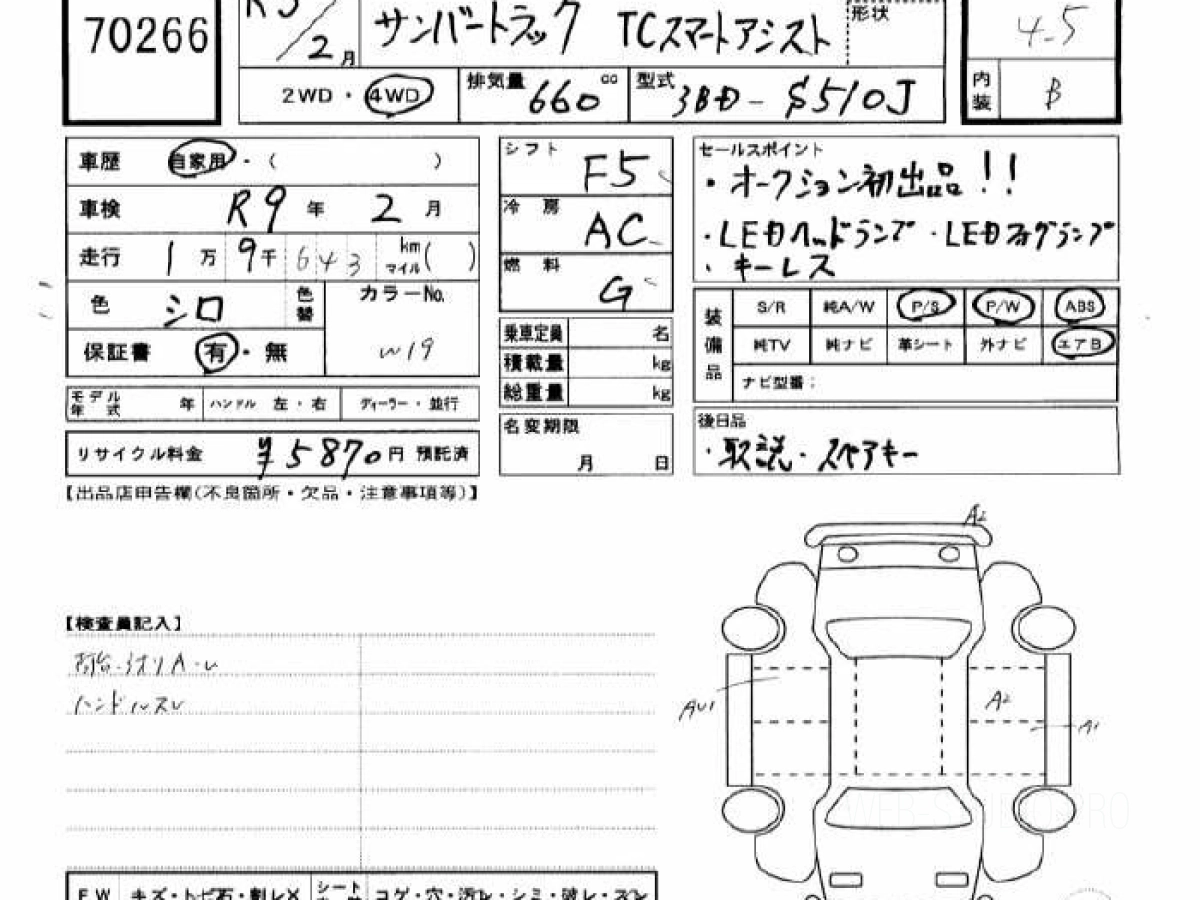 70266
R3/2月 サンバートラック TCスマートアシスト 形状
4.5
2WD・4WD 排気量 660 cc 型式 3BD-S510J
内装 B
車歴 自家用・( )
車検 R9年 2月
走行 1万 9千 643 km マイル( )
色 シロ 色替 カラーNo. W19
保証書 有・無
モデル年式 年 ハンドル 左・右 ディーラー・並行
リサイクル料金 ¥5870円 預託済
シフト F5
冷房 AC
燃料 G
乗車定員 名
積載量 kg
総重量 kg
名変期限 月 日
セールスポイント
・オークション初出品!!
・LEDヘッドランプ ・LEDフォグランプ
・キーレス
装備品 S/R 純A/W P/S P/W ABS
純TV 純ナビ 革シート 外ナビ エアB
ナビ型番:
後日品
・取説・スペアキー
【出品店申告欄(不良箇所・欠品・注意事項等)】
A2
【検査員記入】
ハンドルスレ
AU1 A2 A1
FW キズ・トビ石・割レX シート コゲ・穴・汚レ・シミ・破レ・スレ